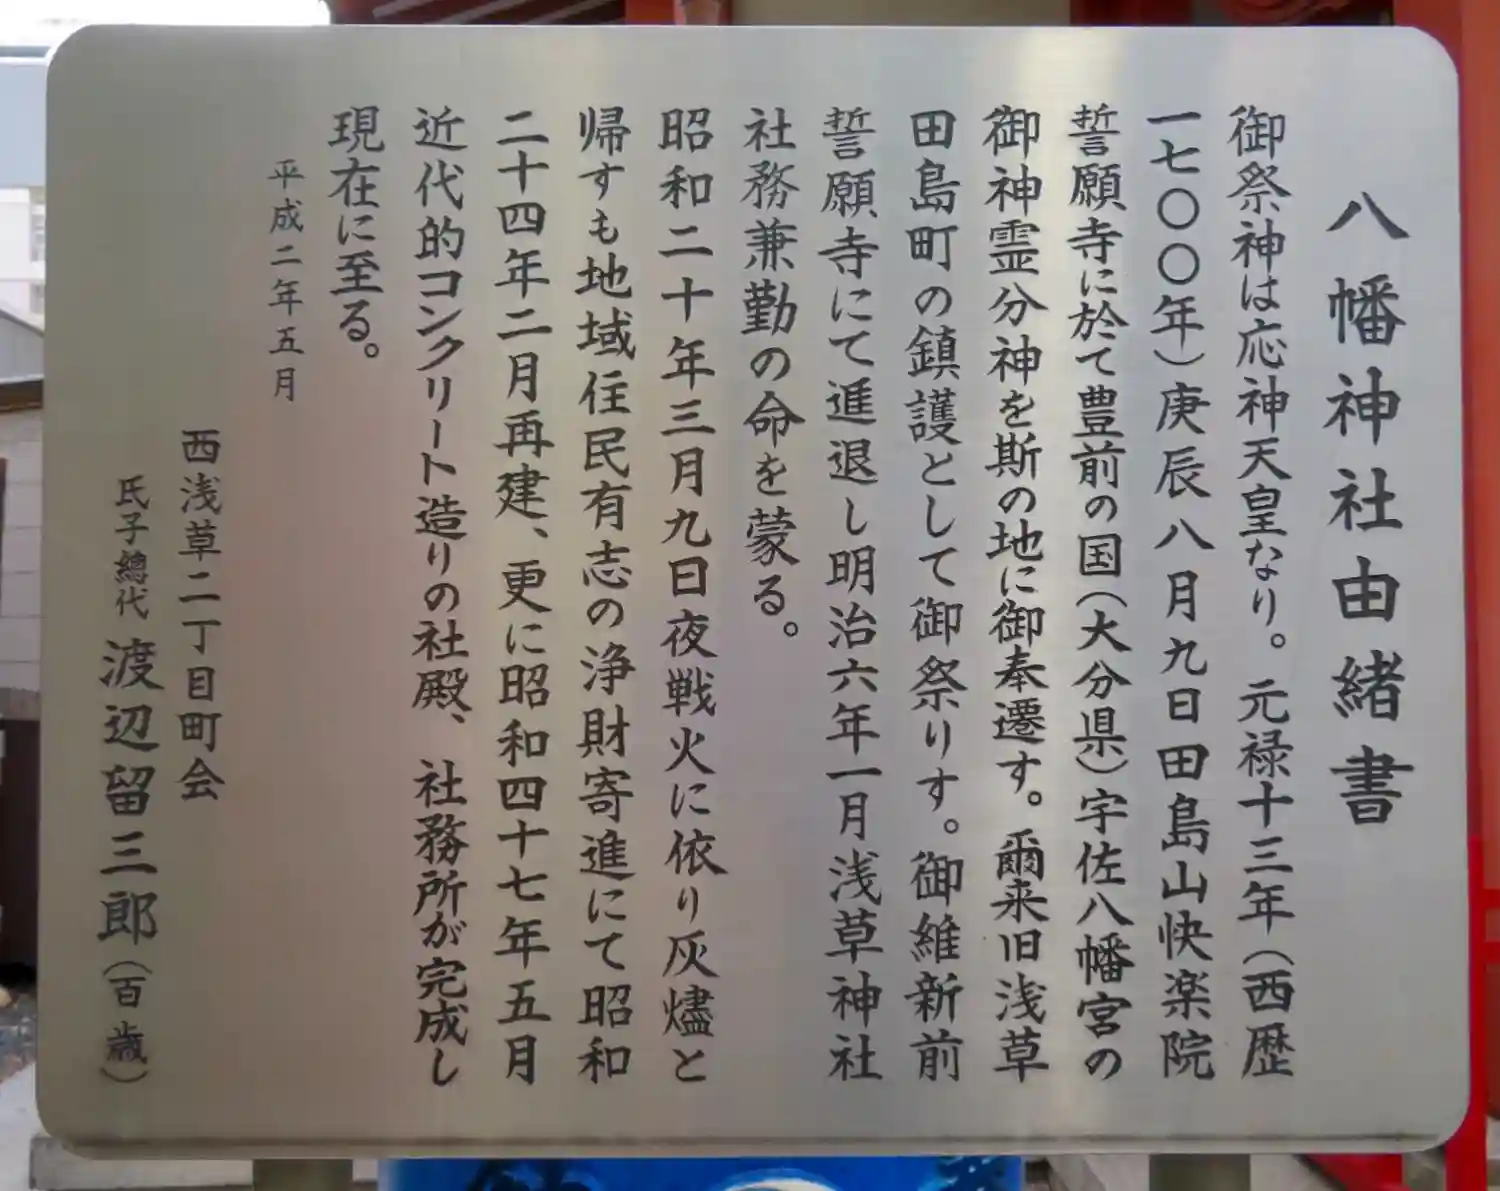 八幡神社由緒書
御祭神は応神天皇なり。元禄十三年（西歴
一七〇〇年）庚辰八月九日田島山快楽院
誓願寺に於て豊前の国（大分県）宇佐八幡宮の
御神霊分神を斯の地に御奉遷す。爾来旧浅草
田島町の鎮護として御祭りす。御維新前
誓願寺にて進退し明治六年一月浅草神社
社務兼勤の命を蒙る。
昭和二十年三月九日夜戦火に依り灰燼と
帰すも地域住民有志の浄財寄進にて昭和
二十四年二月再建、更に昭和四十七年五月
近代的コンクリート造りの社殿、社務所が完成し
現在に至る。
平成二年五月
西浅草二丁目町会
氏子總代 渡辺留三郎（百歳）